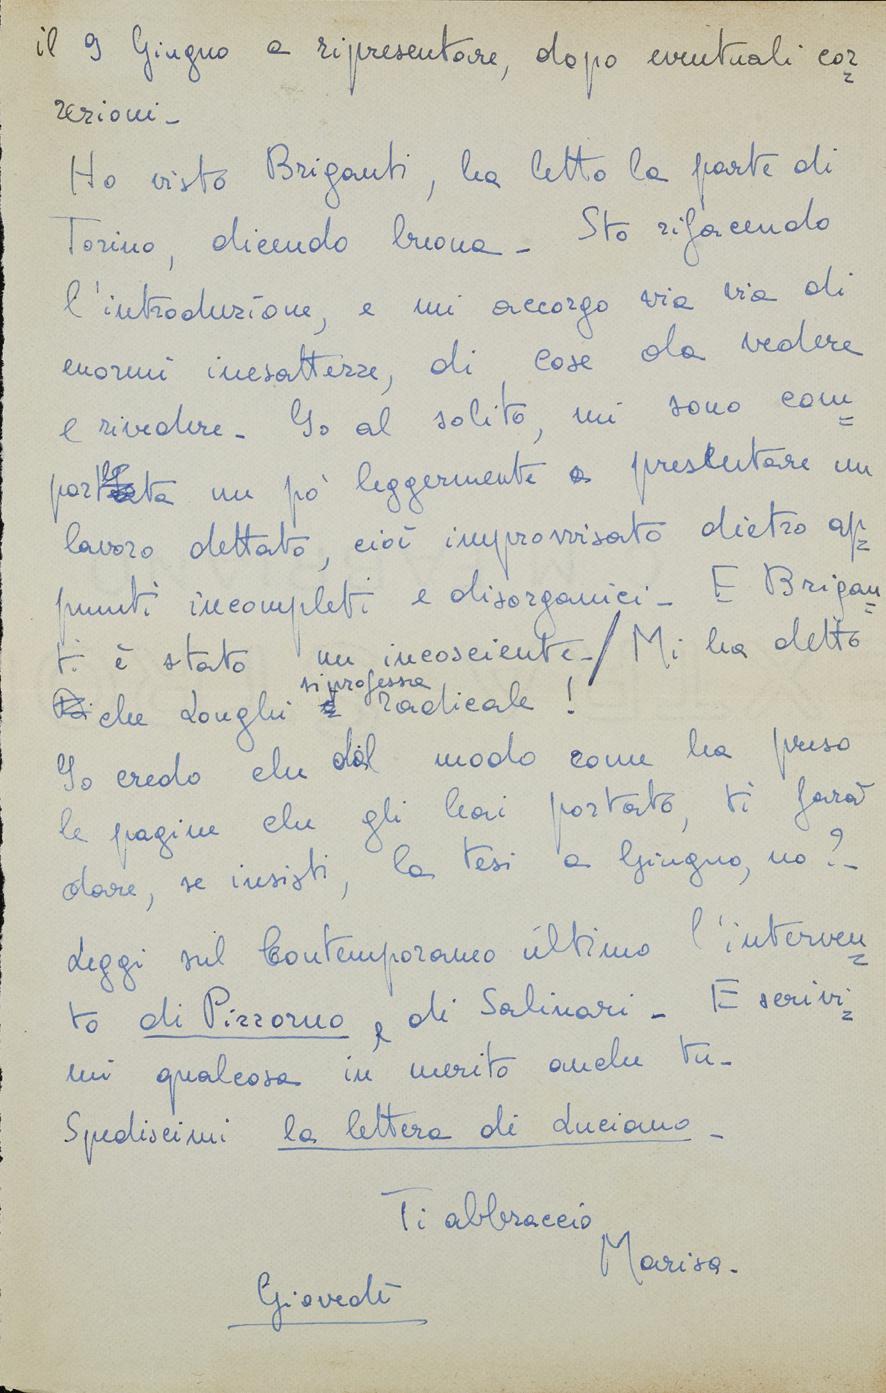 il 9 Giugno a ripresentare, dopo eventuali cor=
rezioni-
Ho visto Briganti, ha letto la parte di
Torino, dicendo buona - Sto rifacendo
l'introduzione, e mi accorgo via via di
enormi inesattezze, di cose da vedere
e rivedere - Io al solito, mi sono com=
portata un pò leggermente a presentare un
lavoro dettato, cioè improvvisato dietro ap=
punti incompleti e disorganici - E Brigan=
ti è stato un incosciente-/ Mi ha detto
che Longhi si professa radicale !
Io credo che dal modo come ha preso
le pagine che gli hai portato, ti farà
dare, se insisti, la tesi a Giugno, no?-
Leggi sul Contemporaneo ultimo l'interven=
to di Pizzorno e di Salinari - E scrivi=
mi qualcosa in merito anche tu-
Spediscimi la lettera di Luciano -
Ti abbraccio
Marisa-
Giovedì